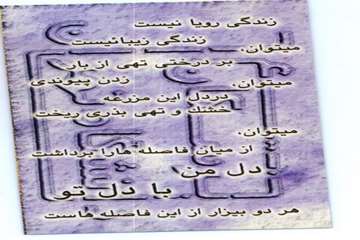 زندگی رویا نیست
زندگی زیبائیست
میتوان،
بر درختی تهی از بار،
زدن پیوندی
میتوان،
دردل این مزرعه
خشك و تهی بذری ریخت
میتوان،
از میان فاصله هارا برداشت
دل من
با دل تو
هر دو بیزار از این فاصله هاست